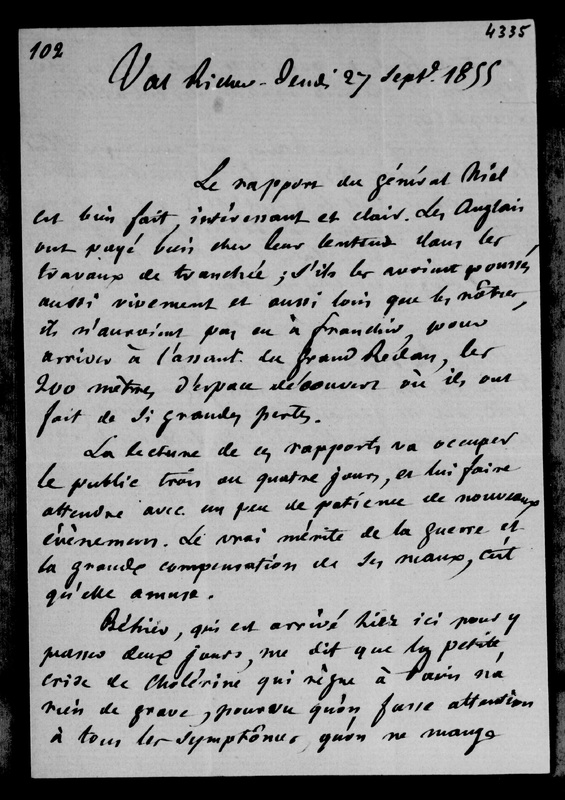 102
4335
Val Richer - Jeudi 27 Septe. 1855
Le rapport du général Niel
est bien fait, intéressant et clair. Les Anglais
ont payé bien cher leur lenteur dans les
travaux de tranchée ; s'ils les avoient poussés
aussi vivement et aussi loin que les nôtres,
ils n'auroient pas eu à franchir, pour
arriver à l'assaut du grand Redan, les
200 mètres d'espace découvert où ils ont
fait de si grandes pertes.
La lecture de ces rapports va occuper
le public trois ou quatre jours, et lui faire
attendre avec un peu de patience de nouveaux
évènemens. Le vrai mérite de la guerre et
la grande compensation de ses maux, c'est
qu'elle amuse.
Béhier, qui est arrivé hier ici pour y
passer deux jours, me dit que la petite
crise de cholérine qui règne à Paris n'a
rien de grave, pourvu qu'on fasse attention
à tous les symptômes, qu'on ne mange